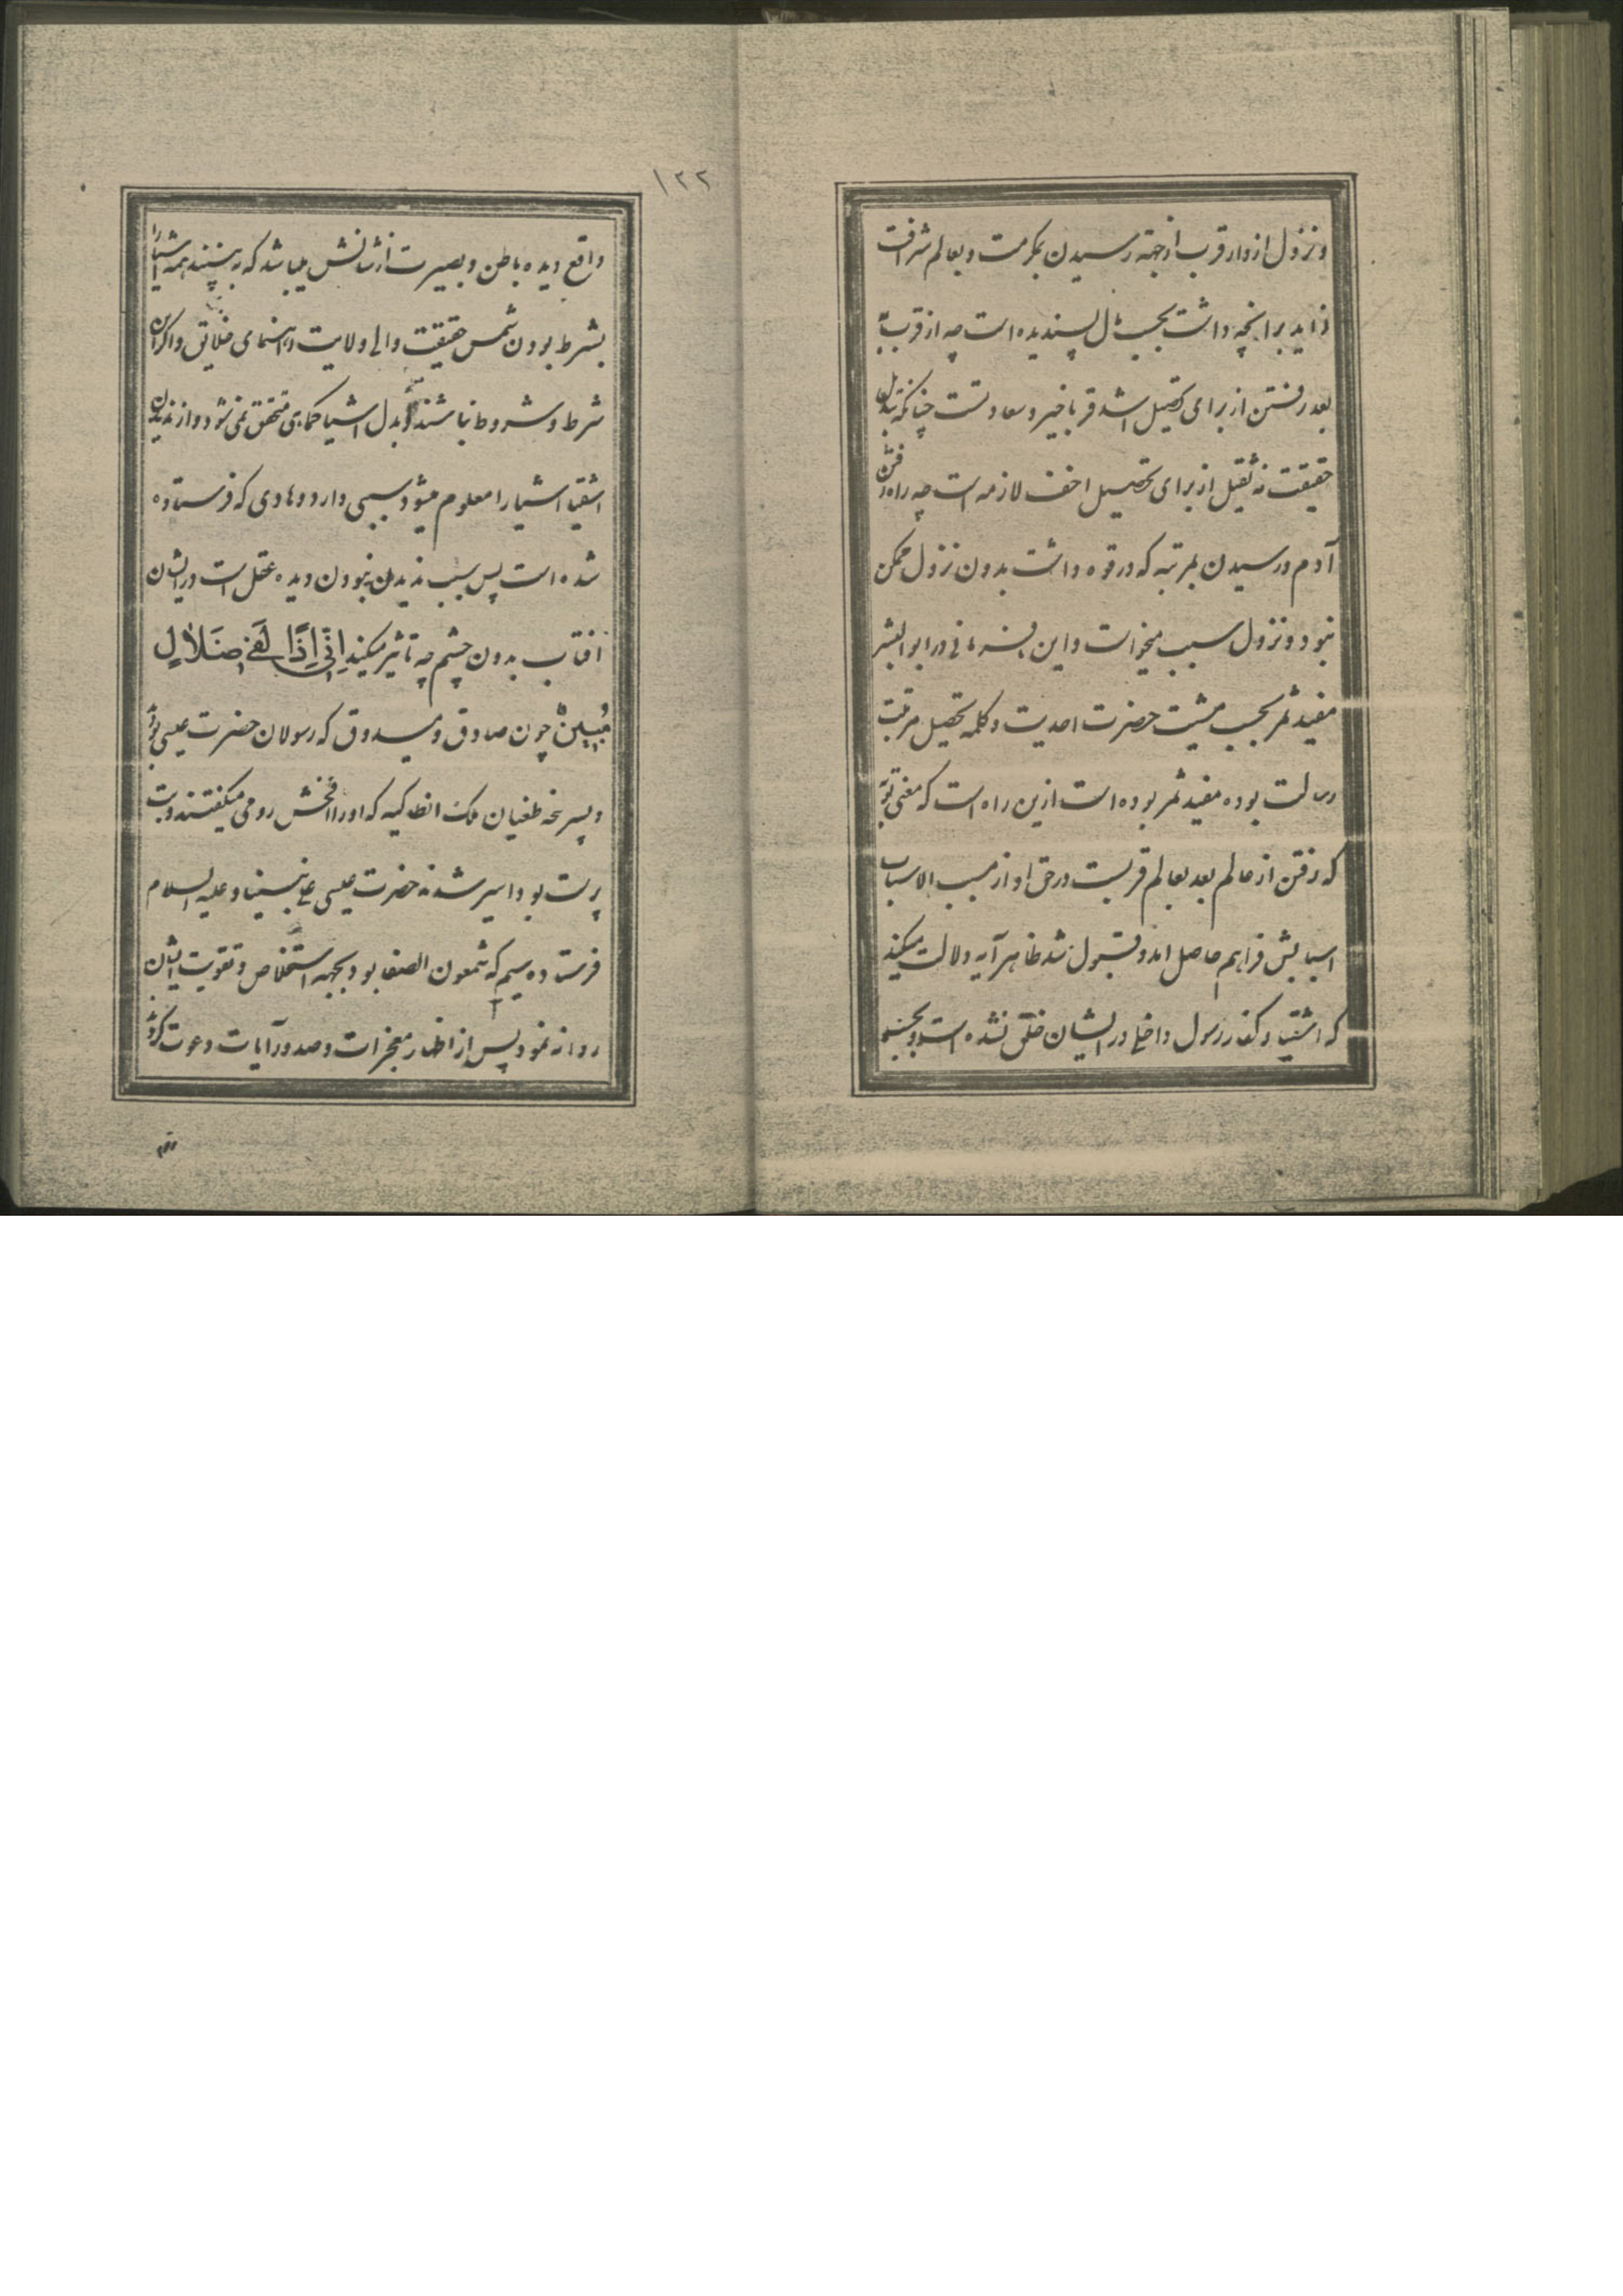 ونزول از دار قرب از جهة رسیدن بمکرمت و بعالم شرافت
زاید بر انچه داشت بحسب مآل پسندیده است چه از قرب به
بعد رفتن از برای تحصیل اشد قربا خیر و سعادتست چنانکه تبدیل
حقیقت نه ثقیل از برای تحصیل اخف لازمه است چه راه رفتن
آدم و رسیدن بمرتبه که در قوه داشت بدون نزول ممکن
نبود و نزول سبب میخواست و این بسه مانی در ابوالبشر
مفید ثمر بحسب مشیت حضرت احدیت و کلمه تحصیل مرتبت
رسالت بوده مفید ثمر بوده است ازین راه است که معنی توبه
که رفتن از عالم بعد بعالم قربست در حق او از مسبب الاسباب
اسبابش فراهم حاصل امد و قبول شد ظاهر آیه دلالت میکند
که اشقیا و کفار رسول داخلی در ایشان خلق نشده است و بحسب
۱۲۲
واقع دیده باطن و بصیرت از شانش میباشد که به بینند همه اشیا را
بشرط بودن شمس حقیقت والی ولایت و راهنمای خلایق و اگر این
شرط و مشروط نباشند بدل اشیا کماهی متحقق نمی شود و از ندیدن
اشقیا اشیا را معلوم میشود سببی دارد و هادی که فرستاده
شده است پس سبب ندیدن نبودن دیده عقل است در ایشان
افتاب بدون چشم چه تاثیر میکند اِنّی اِذًا لَفی ضَلالٍ
مُبینٍ چون صادق و صدوق که رسولان حضرت عیسی بودند
و پسر نخه طغیان ملک انطاکیه که او را افخش رومی میگفتند و بت
پرست بود اسیر شدند حضرت عیسی علی نبینا و علیه السلام
فرستاده سیم که شمعون الصفا بود بجهه استخلاص و تقویت ایشان
روانه نمود پس از اظهار معجزات و صدور آیات دعوت کردند